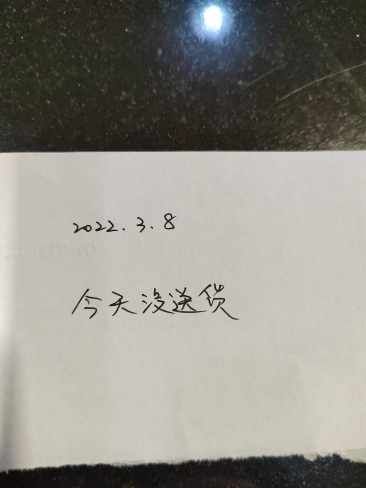 2022.3.8
今天没送货